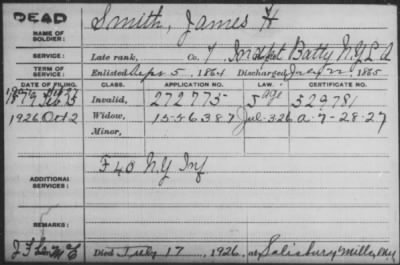 DEAD
NAME OF SOLDIER: Smith, James H
SERVICE: Late rank, Co. 7 Indpt Batty N.Y.L.A
TERM OF SERVICE: Enlisted Sept 5, 1864 Discharged 22, 1865
DATE OF FILING. CLASS. APPLICATION NO. LAW. CERTIFICATE NO.
1879 Feb 25 Invalid, 272775 age 329781
1926 Oct 2 Widow, 1556387 a-7-28-27
Minor,
ADDITIONAL SERVICES: F 40 N.Y Inf
REMARKS:
Died July 17, 1926, at Salisbury Mills, N.Y.